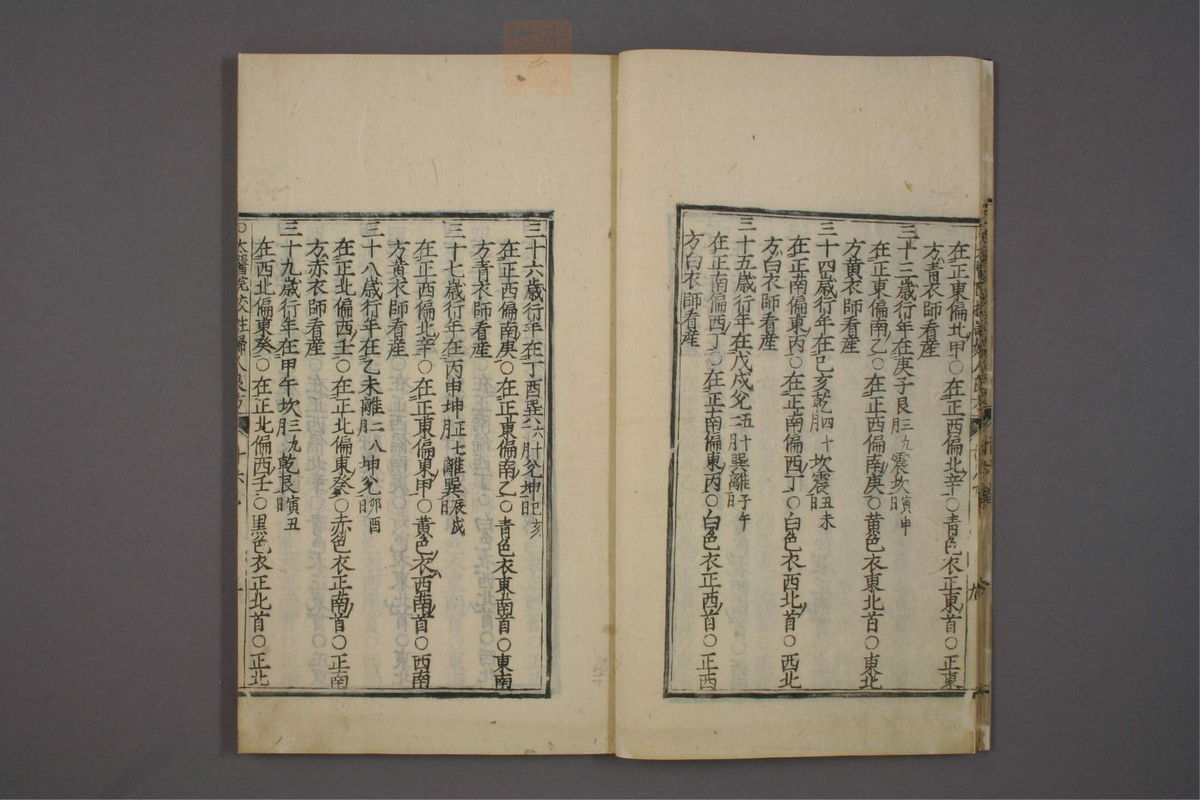 在正東偏北甲○在正西偏北辛○青色衣正東首○正東
方青衣師看産
三十三歲行年在庚子艮三九月震坎寅申日
在正東偏南乙○在正西偏南庚○黄色衣東北首○東北
方黄衣師看産
三十四歲行年在已亥乾四十月坎震丑未日
在正南偏東丙○在正南偏西丁○白色衣西北首○西北
方白衣師看産
三十五歲行年在戊戍兌五十一月巽離子午日
在正南偏西丁○在正南偏東丙○白色衣正西首○正西
方白衣師看産
三十六歲行年在丁酉巽六十二月兌坤巳亥日
在正西偏南庚○在正東偏南乙○青色衣東南首○東南
方青衣師看産
三十七歲行年在丙申坤正七月離巽辰戍日
在正西偏北辛○在正東偏東甲○黄色衣西南首○西南
方黄衣師看産
三十八歲行年在乙未離二八月坤兌卯酉日
在正北偏西壬○在正北偏東癸○赤色衣正南首○正南
方赤衣師看産
三十九歲行年在甲午坎三九月乾艮寅丑日
在西北偏東癸○在正北偏西壬○黑色衣正北首○正北
○太醫院校註婦人良方 十六